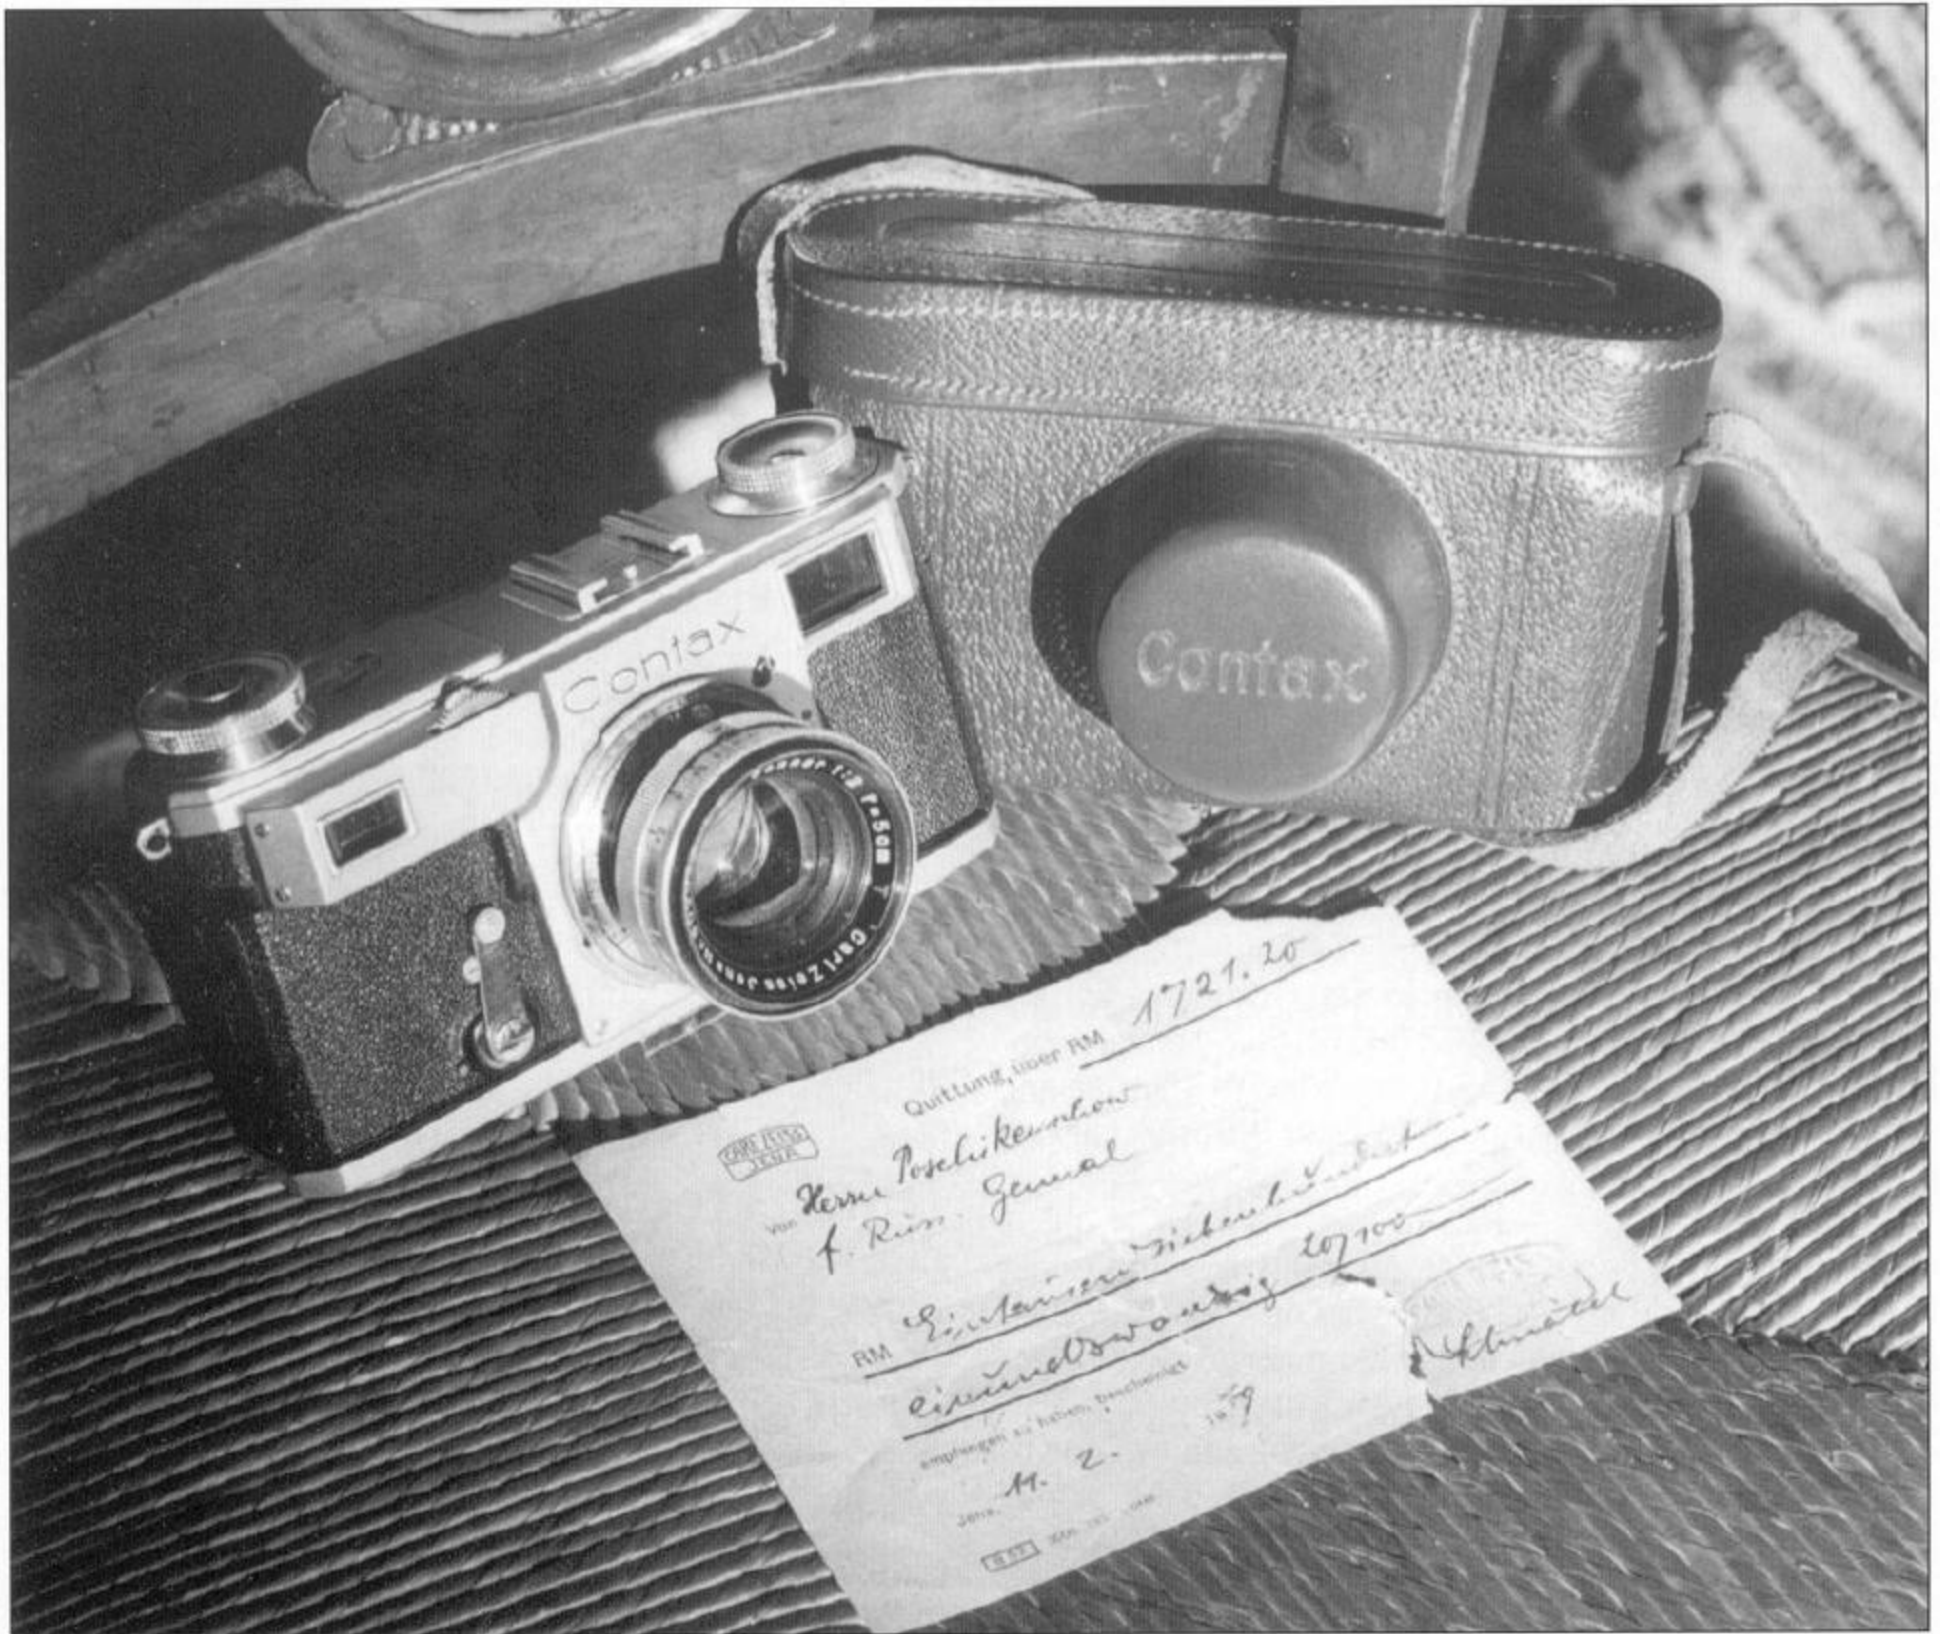 Contax
Contax
Sonnar 1:2 f=5cm T Carl Zeiss Jena
Quittung, über RM 1721.20
CARL ZEISS
JENA
von Herrn Poschikenschow
f. Russ. General
RM Eintausendsiebenhundert
einundzwanzig 20/100
empfangen zu haben, bescheinigt
Jena, 19. 2.